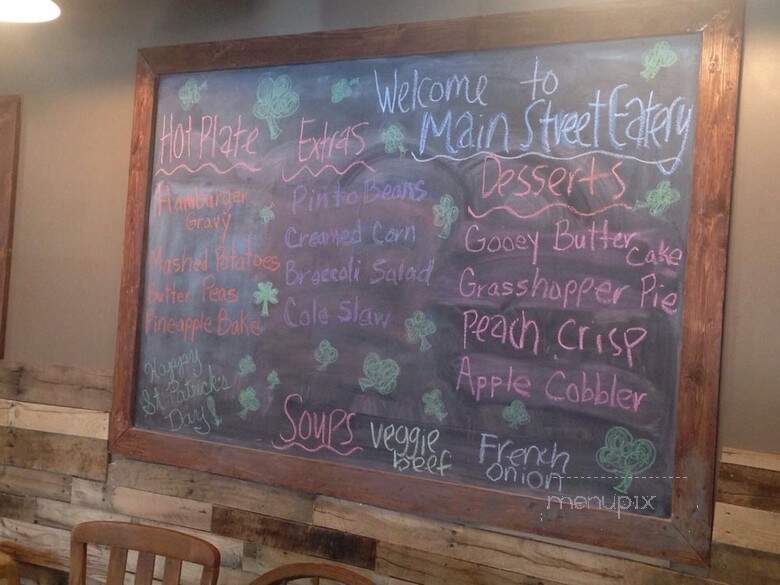 Welcome to
Main Street Eatery
Hot Plate
Hamburger
Gravy
Mashed Potatoes
Butter Peas
Pineapple Bake
Happy
St. Patrick's
Day!
Extras
Pinto Beans
Creamed Corn
Broccoli Salad
Cole Slaw
Desserts
Gooey Butter
Cake
Grasshopper Pie
Peach Crisp
Apple Cobbler
Soups
Veggie
Beef
French
Onion
menupix